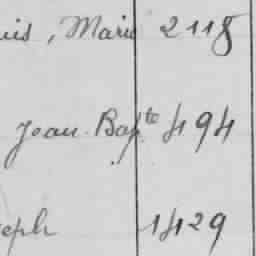 uis, Marie 2118
Jean Bapte 494
seph 1429